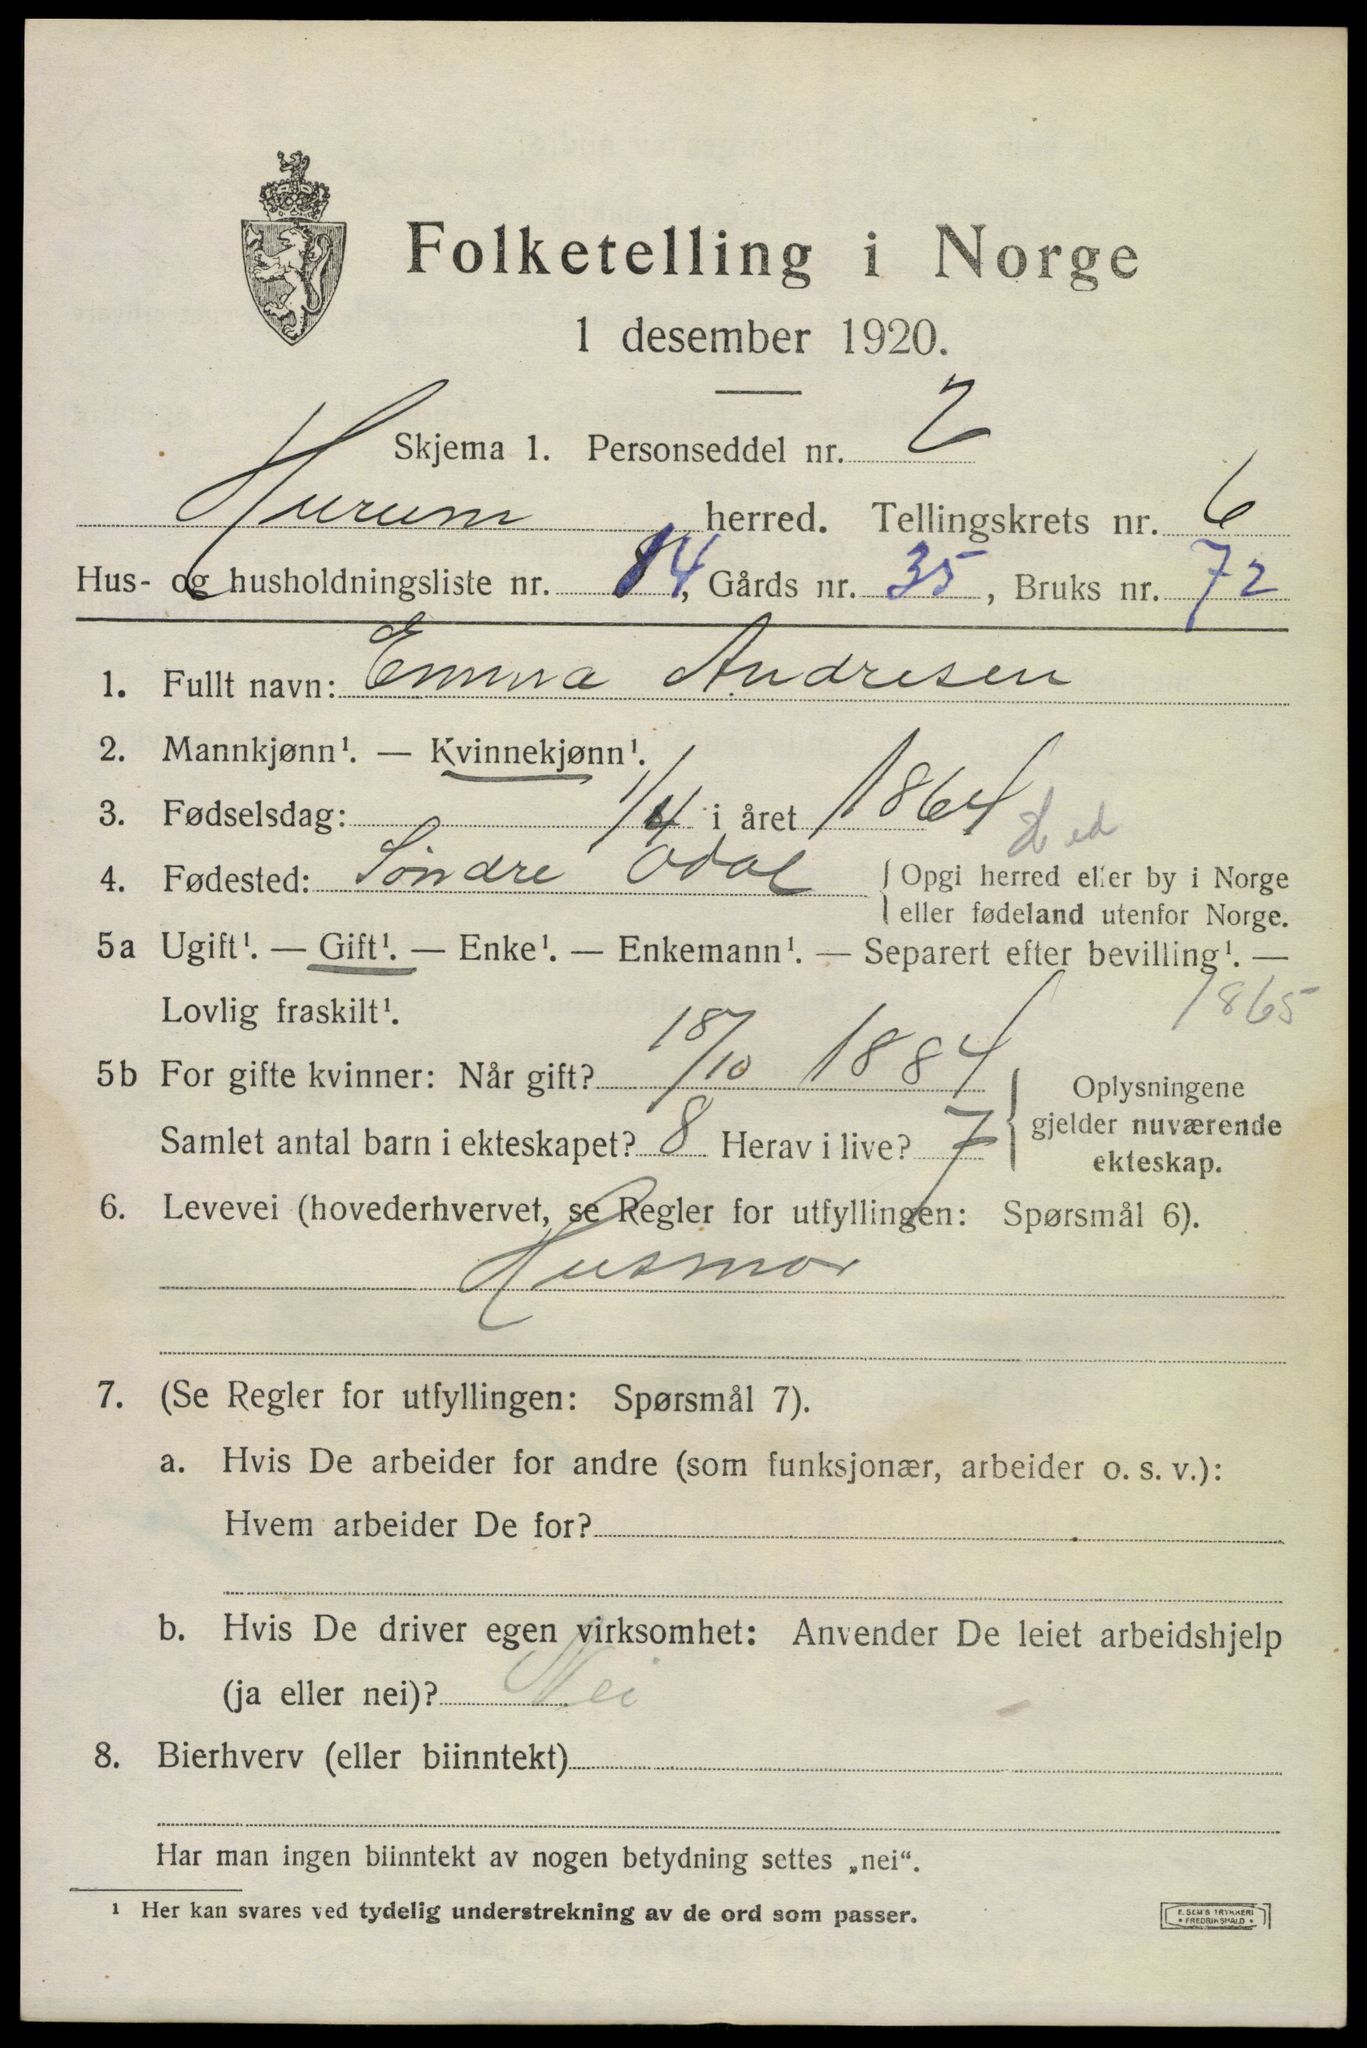 Folketelling i Norge
1 desember 1920.
Skjema 1. Personseddel nr. 2
Hurum herred. Tellingskrets nr. 6
Hus- og husholdningsliste nr. 14, Gårds nr. 35, Bruks nr. 72
1. Fullt navn: Emma Andresen
2. Mannkjønn¹. — Kvinnekjønn¹.
3. Fødselsdag: 1/4 i året 1864
4. Fødested: Søndre Odal { Opgi herred eller by i Norge
eller fødeland utenfor Norge.
5a Ugift¹. — Gift¹. — Enke¹. — Enkemann¹. — Separert efter bevilling¹. —
Lovlig fraskilt¹. 1865
5b For gifte kvinner: Når gift? 18/10 1884 } Oplysningene
Samlet antal barn i ekteskapet? 8 Herav i live? 7 gjelder nuværende
ekteskap.
6. Levevei (hovederhvervet, se Regler for utfyllingen: Spørsmål 6).
Husmor
7. (Se Regler for utfyllingen: Spørsmål 7).
a. Hvis De arbeider for andre (som funksjonær, arbeider o. s. v.):
Hvem arbeider De for?
b. Hvis De driver egen virksomhet: Anvender De leiet arbeidshjelp
(ja eller nei)? Nei
8. Bierhverv (eller biinntekt)
Har man ingen biinntekt av nogen betydning settes „nei“.
¹ Her kan svares ved tydelig understrekning av de ord som passer.
E. SEMS TRYKKERI
• FREDRIKSHALD •